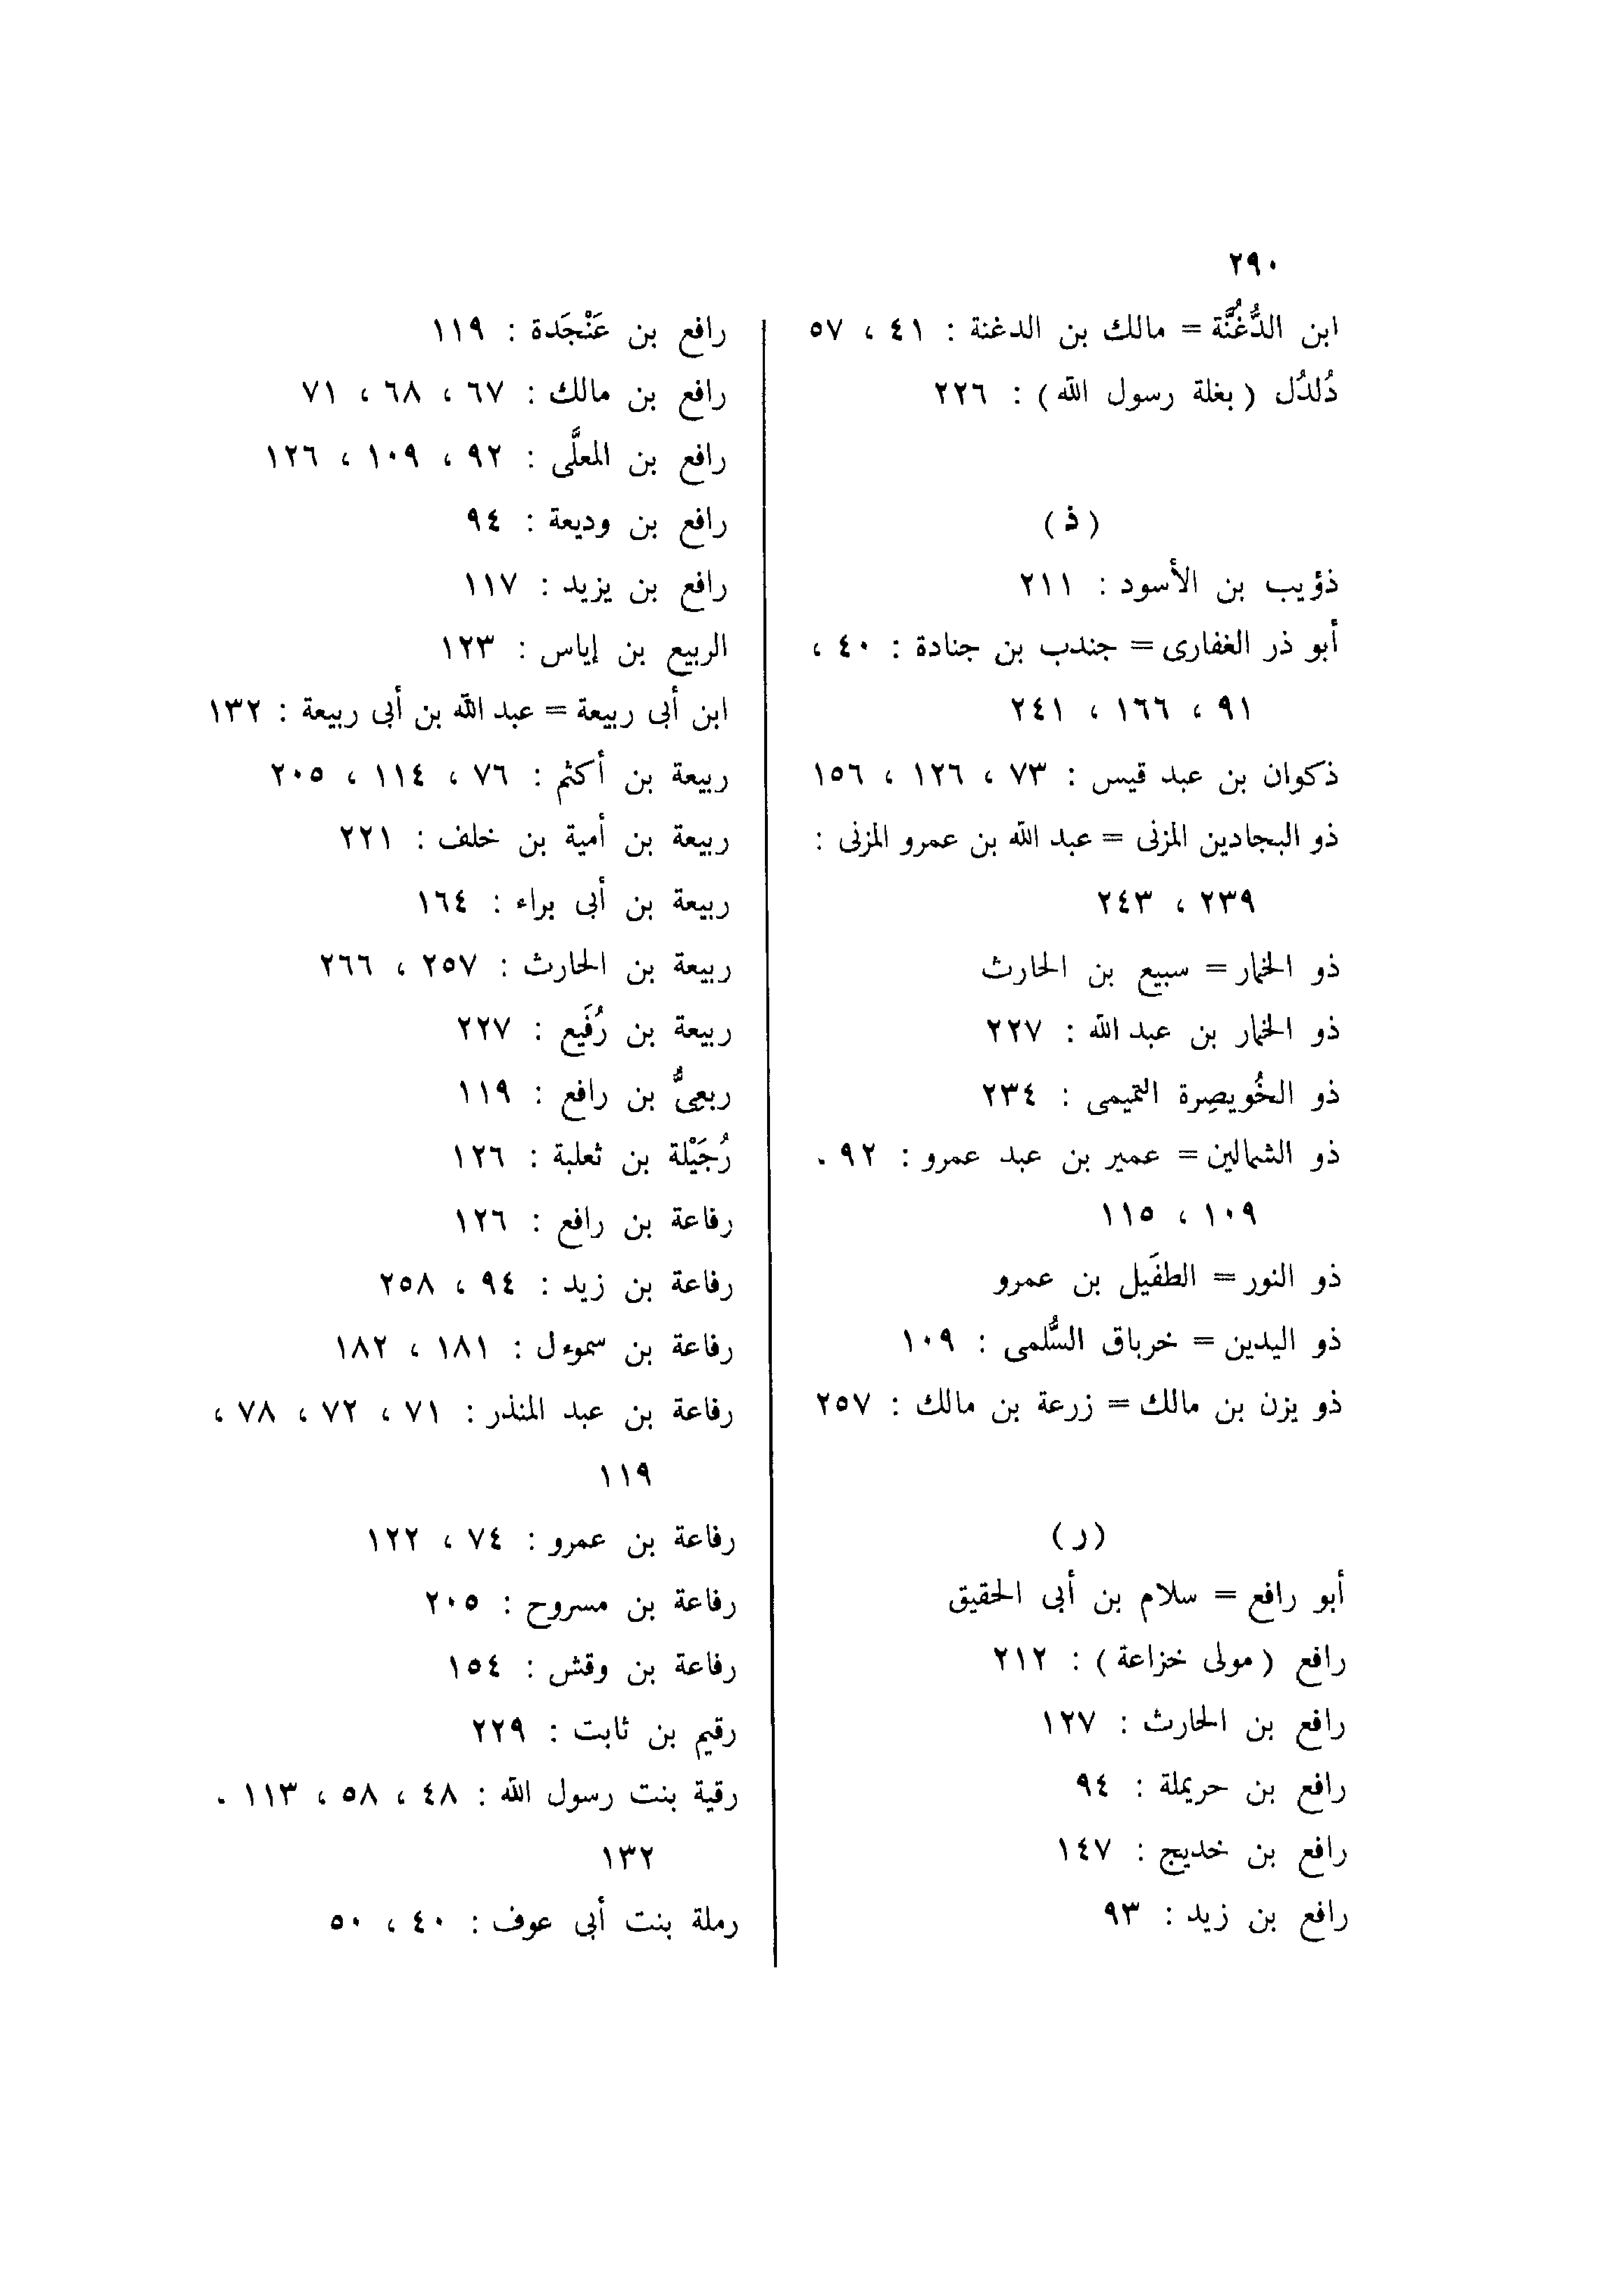 ٢٩٠
ابن الدُّغُنَّة = مالك بن الدغنة : ٤١ ، ٥٧
دُلدُل ( بغلة رسول الله ) : ٢٢٦
( ذ )
ذؤيب بن الأسود : ٢١١
أبو ذر الغفارى = جندب بن جنادة : ٤٠ ،
٩١ ، ١٦٦ ، ٢٤١
ذكوان بن عبد قيس : ٧٣ ، ١٢٦ ، ١٥٦
ذو البجادين المزنى = عبد الله بن عمرو المزنى :
٢٣٩ ، ٢٤٣
ذو الخمار = سبيع بن الحارث
ذو الخمار بن عبد الله : ٢٢٧
ذو الخُويصِرة التميمى : ٢٣٤
ذو الشمالين = عمير بن عبد عمرو : ٩٢ .
١٠٩ ، ١١٥
ذو النور = الطفَيل بن عمرو
ذو اليدين = خرباق السُّلمى : ١٠٩
ذو يزن بن مالك = زرعة بن مالك : ٢٥٧
( ر )
أبو رافع = سلام بن أبى الحقيق
رافع ( مولى خزاعة ) : ٢١٢
رافع بن الحارث : ١٢٧
رافع بن حريملة : ٩٤
رافع بن خديج : ١٤٧
رافع بن زيد : ٩٣
رافع بن عَنْجَدة : ١١٩
رافع بن مالك : ٦٧ ، ٦٨ ، ٧١
رافع بن المعلَّى : ٩٢ ، ١٠٩ ، ١٢٦
رافع بن وديعة : ٩٤
رافع بن يزيد : ١١٧
الربيع بن إياس : ١٢٣
ابن أبى ربيعة = عبد الله بن أبى ربيعة : ١٣٢
ربيعة بن أكثم : ٧٦ ، ١١٤ ، ٢٠٥
ربيعة بن أمية بن خلف : ٢٢١
ربيعة بن أبى براء : ١٦٤
ربيعة بن الحارث : ٢٥٧ ، ٢٦٦
ربيعة بن رُفَيع : ٢٢٧
ربعىُّ بن رافع : ١١٩
رُجَيْلة بن ثعلبة : ١٢٦
رفاعة بن رافع : ١٢٦
رفاعة بن زيد : ٩٤ ، ٢٥٨
رفاعة بن سموءل : ١٨١ ، ١٨٢
رفاعة بن عبد المنذر : ٧١ ، ٧٢ ، ٧٨ ،
١١٩
رفاعة بن عمرو : ٧٤ ، ١٢٢
رفاعة بن مسروح : ٢٠٥
رفاعة بن وقش : ١٥٤
رقيم بن ثابت : ٢٢٩
رقية بنت رسول الله : ٤٨ ، ٥٨ ، ١١٣ .
١٣٢
رملة بنت أبى عوف : ٤٠ ، ٥٠